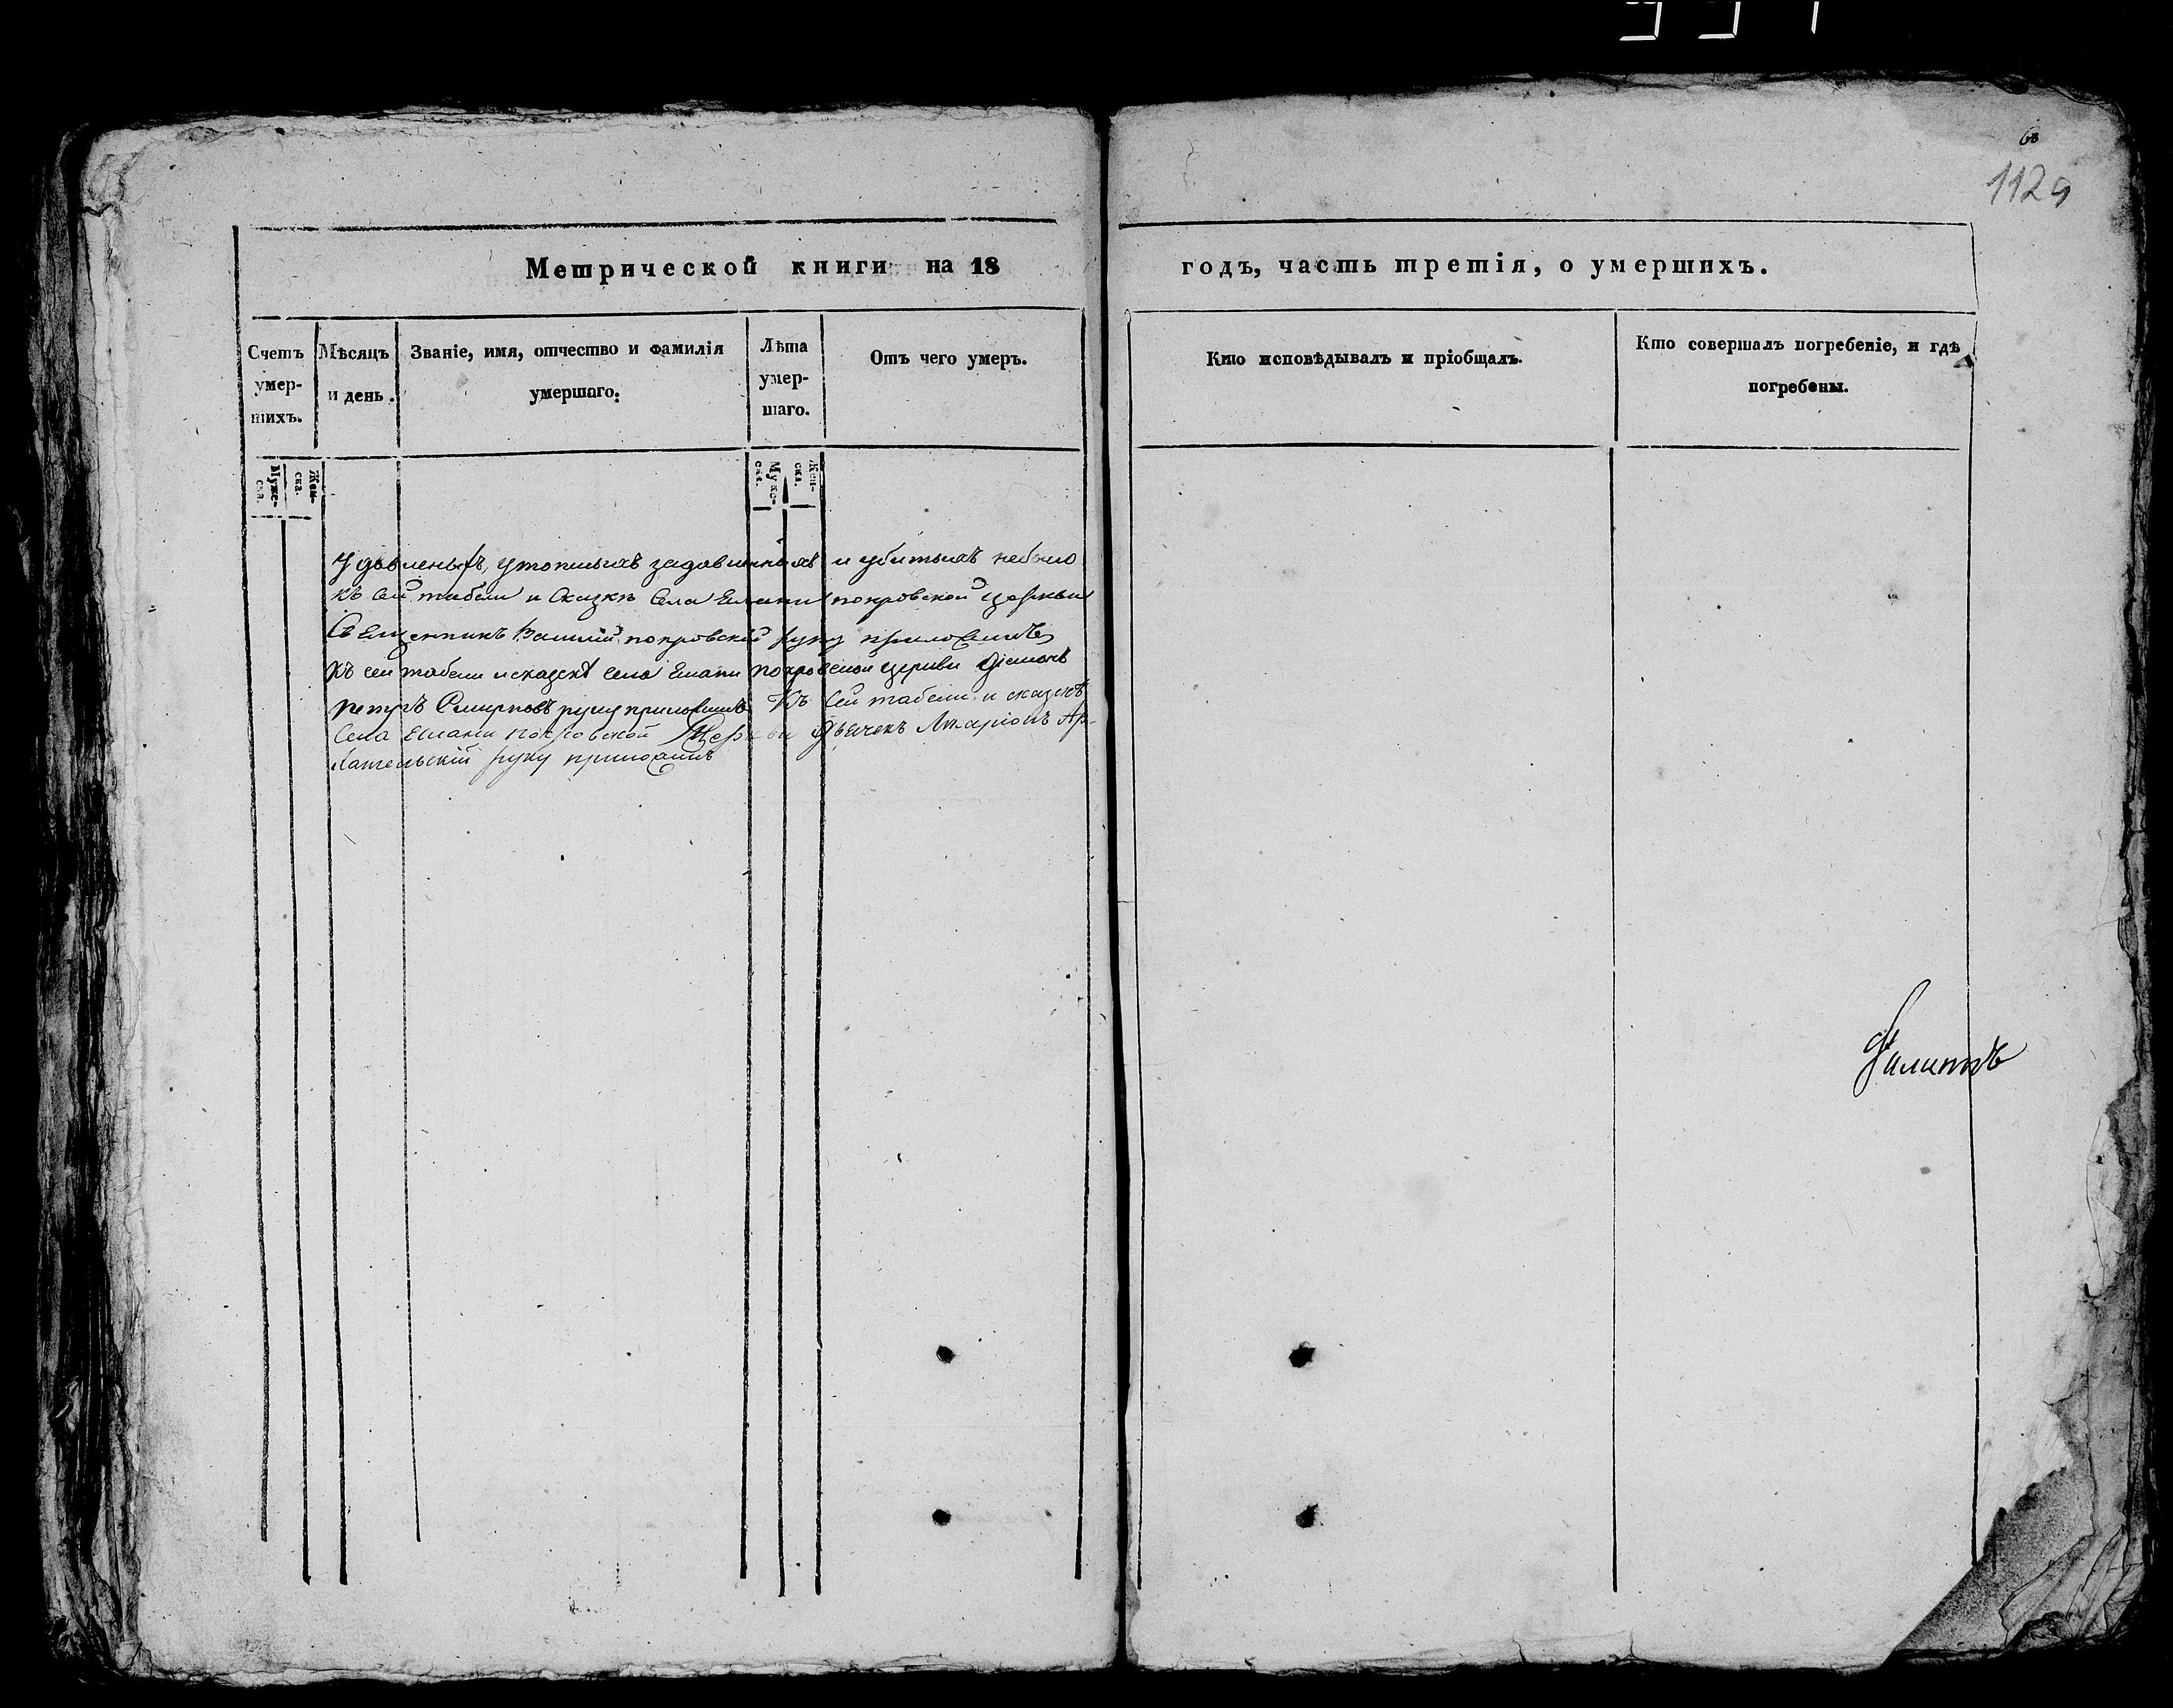 1129
Метрической книги на 18
годъ, часть третія, о умершихъ.
Счетъ умер-шихъ.
Мѣсяцъ и день.
Званіе, имя, отчество и фамилія умершаго.
Лѣта умер-шаго.
Отъ чего умеръ.
Кто исповѣдывалъ и пріобщалъ.
Кто совершалъ погребеніе, и гдѣ погребены.
Муже-ска.
Жен-ска.
Муже-ска.
Жен-ска.
Удавленыхъ, утопшихъ задавленныхъ и убитыхъ небыло
къ сей табели и Сказкѣ Села Елани покровской церкви
Священникъ Василій покровскій руку приложилъ
къ сей табели и сказкѣ села Елани покровской церкви Діаконъ
петръ Смирновъ руку приложилъ Къ Сей табели и сказкѣ
Села Елани покровской Церкви Дьячекъ Иларіонъ Ар-
хангельскій руку приложилъ
Филиппъ